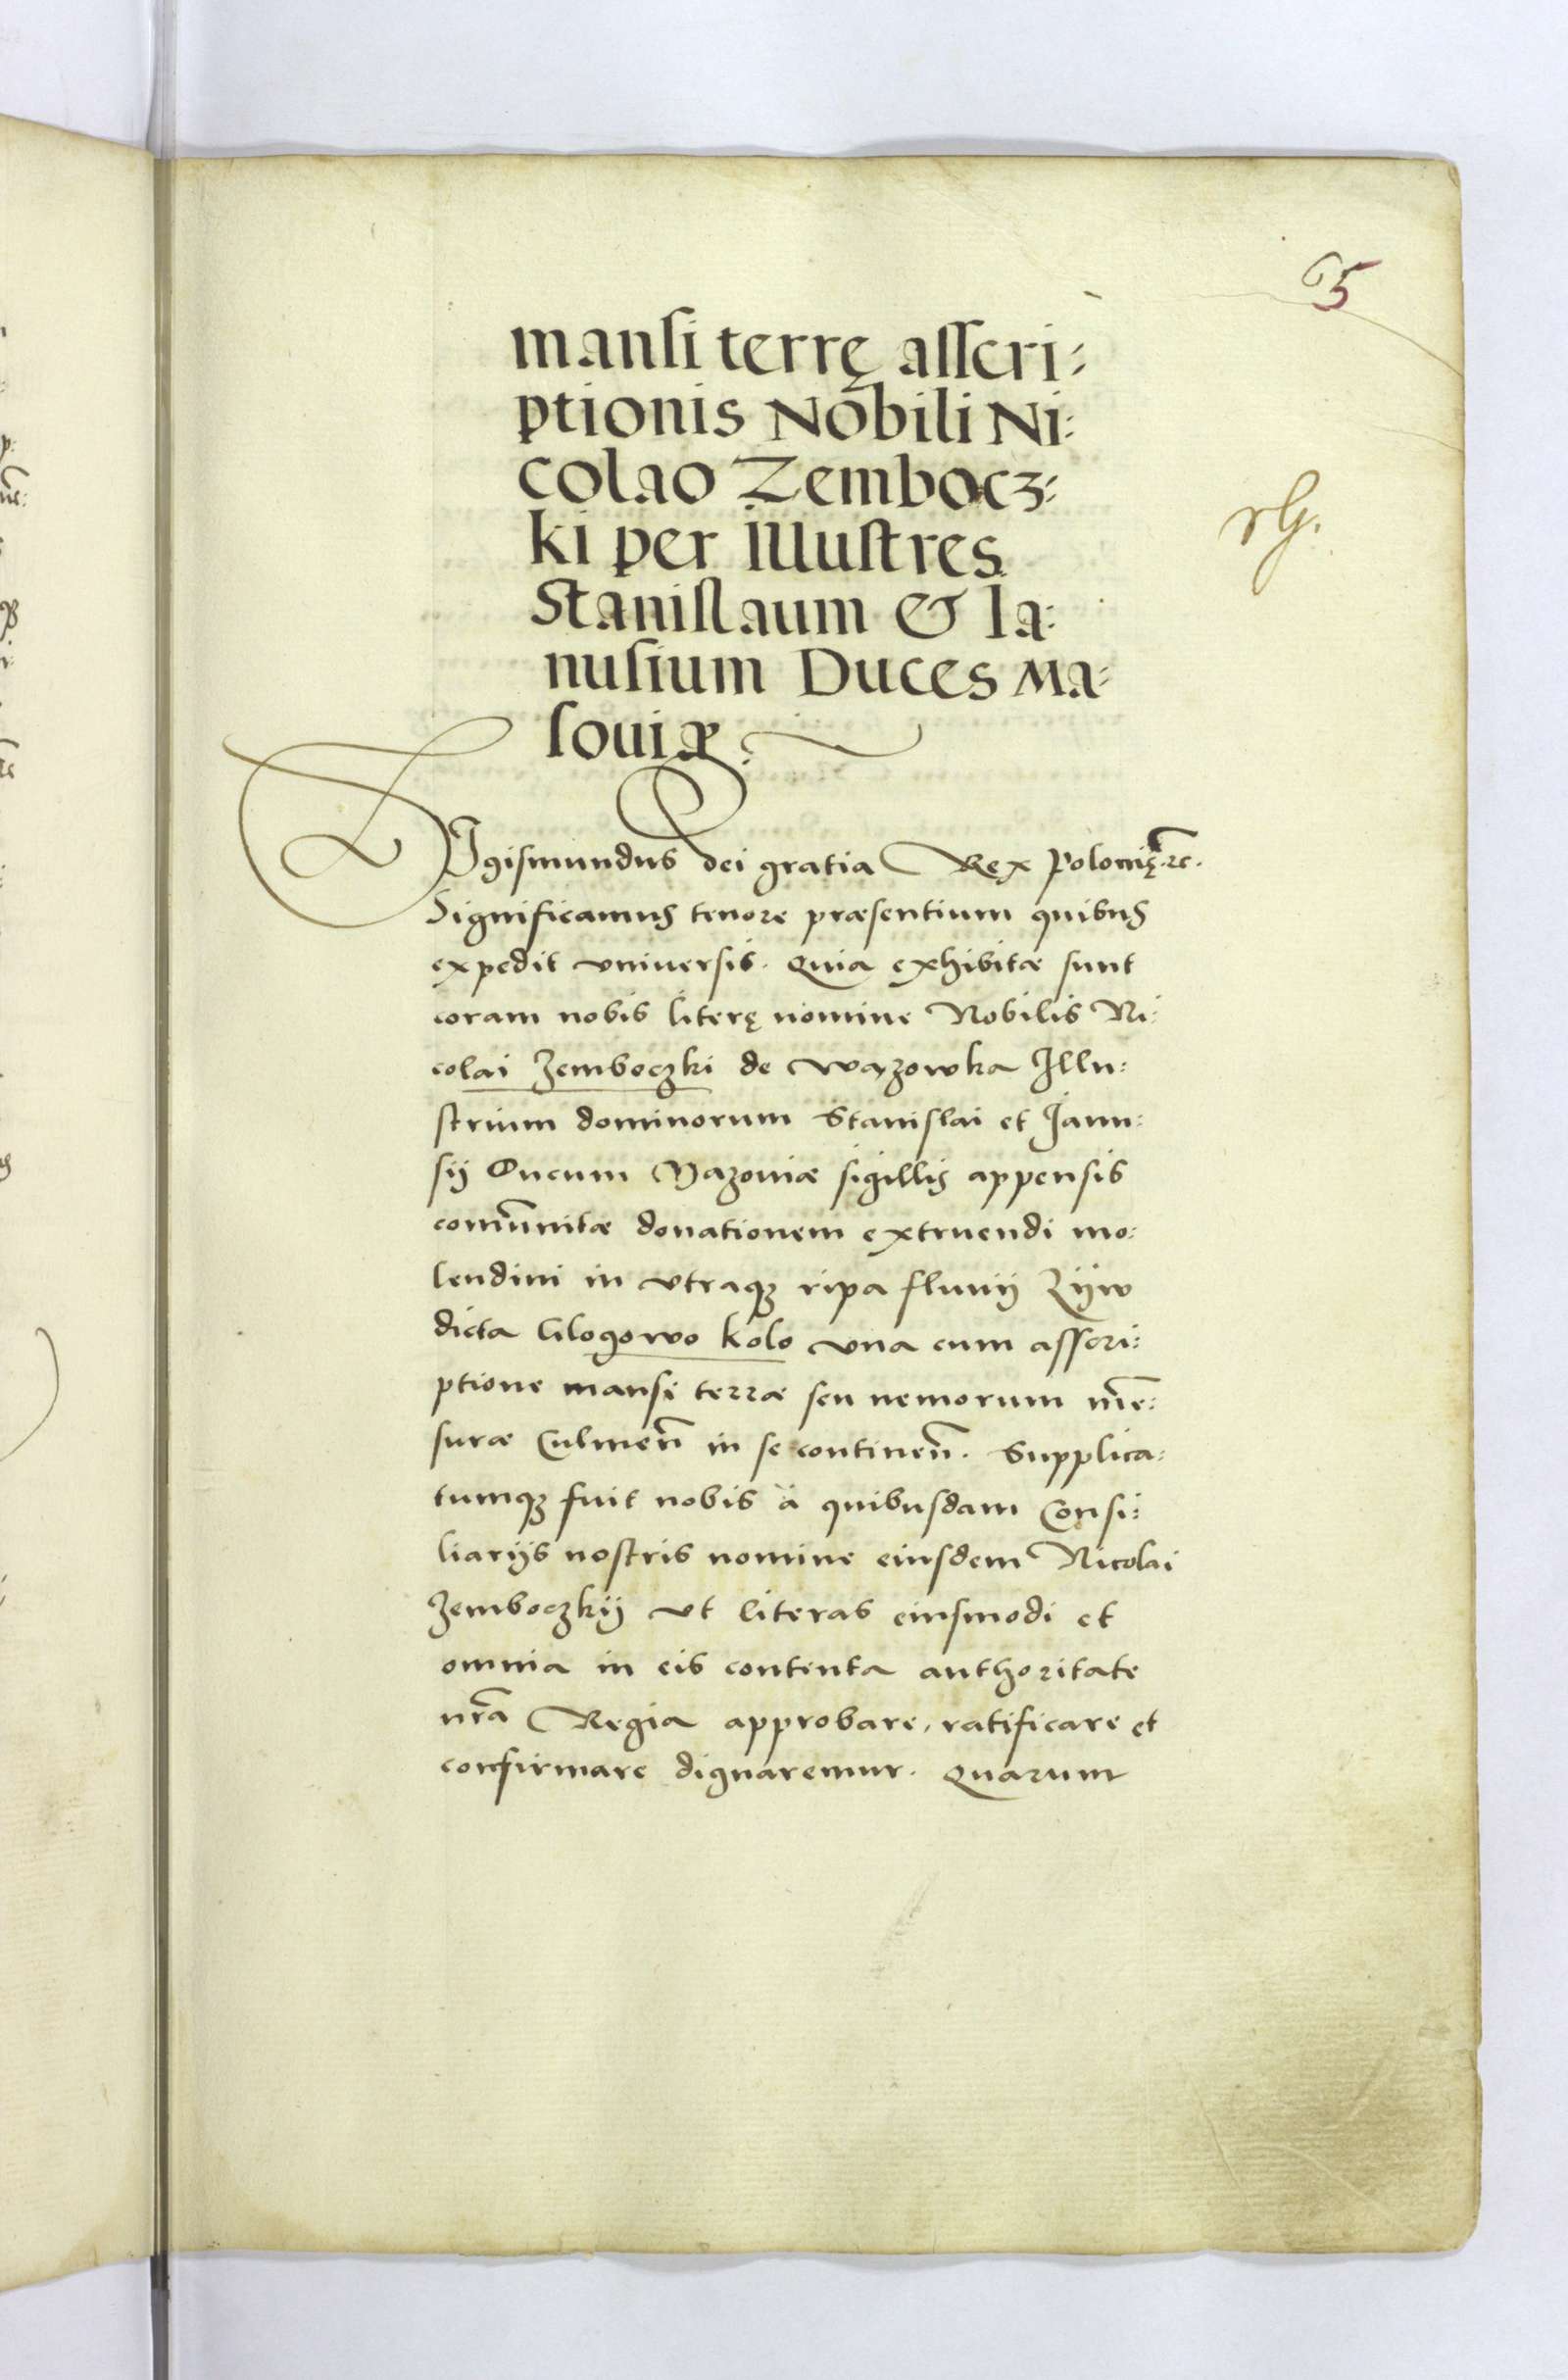 65
mansi terrę asscri:
ptionis Nobili Ni:
colao Zembocz:
ki per illustres
Stanislaum & Ia:
nusium Duces Ma:
souiæ.
Sigismundus dei gratia Rex Polonię. &c.
Significamus tenore præsentium quibus
expedit vniuersis. Quia exhibitæ sunt
coram nobis literę nomine Nobilis Ni:
colai Zemboczki de Wazowka Illu:
strium dominorum Stanislai et Janu:
sij Ducum Mazouiæ sigillis appensis
com̃unitæ donationem extruendi mo:
lendini in vtraqꝫ ripa fluuij Zijw
dicta Glogowo kolo vna cum asscri:
ptione mansi terræ seu nemorum me͂:
suræ Culmen̄ in se continen̄. Supplica:
tumqꝫ fuit nobis à quibusdam Consi:
liarijs nostris nomine eiusdem Nicolai
Zemboczkij vt literas eiusmodi et
omnia in eis contenta authoritate
nr̄a Regia approbare, ratificare et
confirmare dignaremur. Quarum